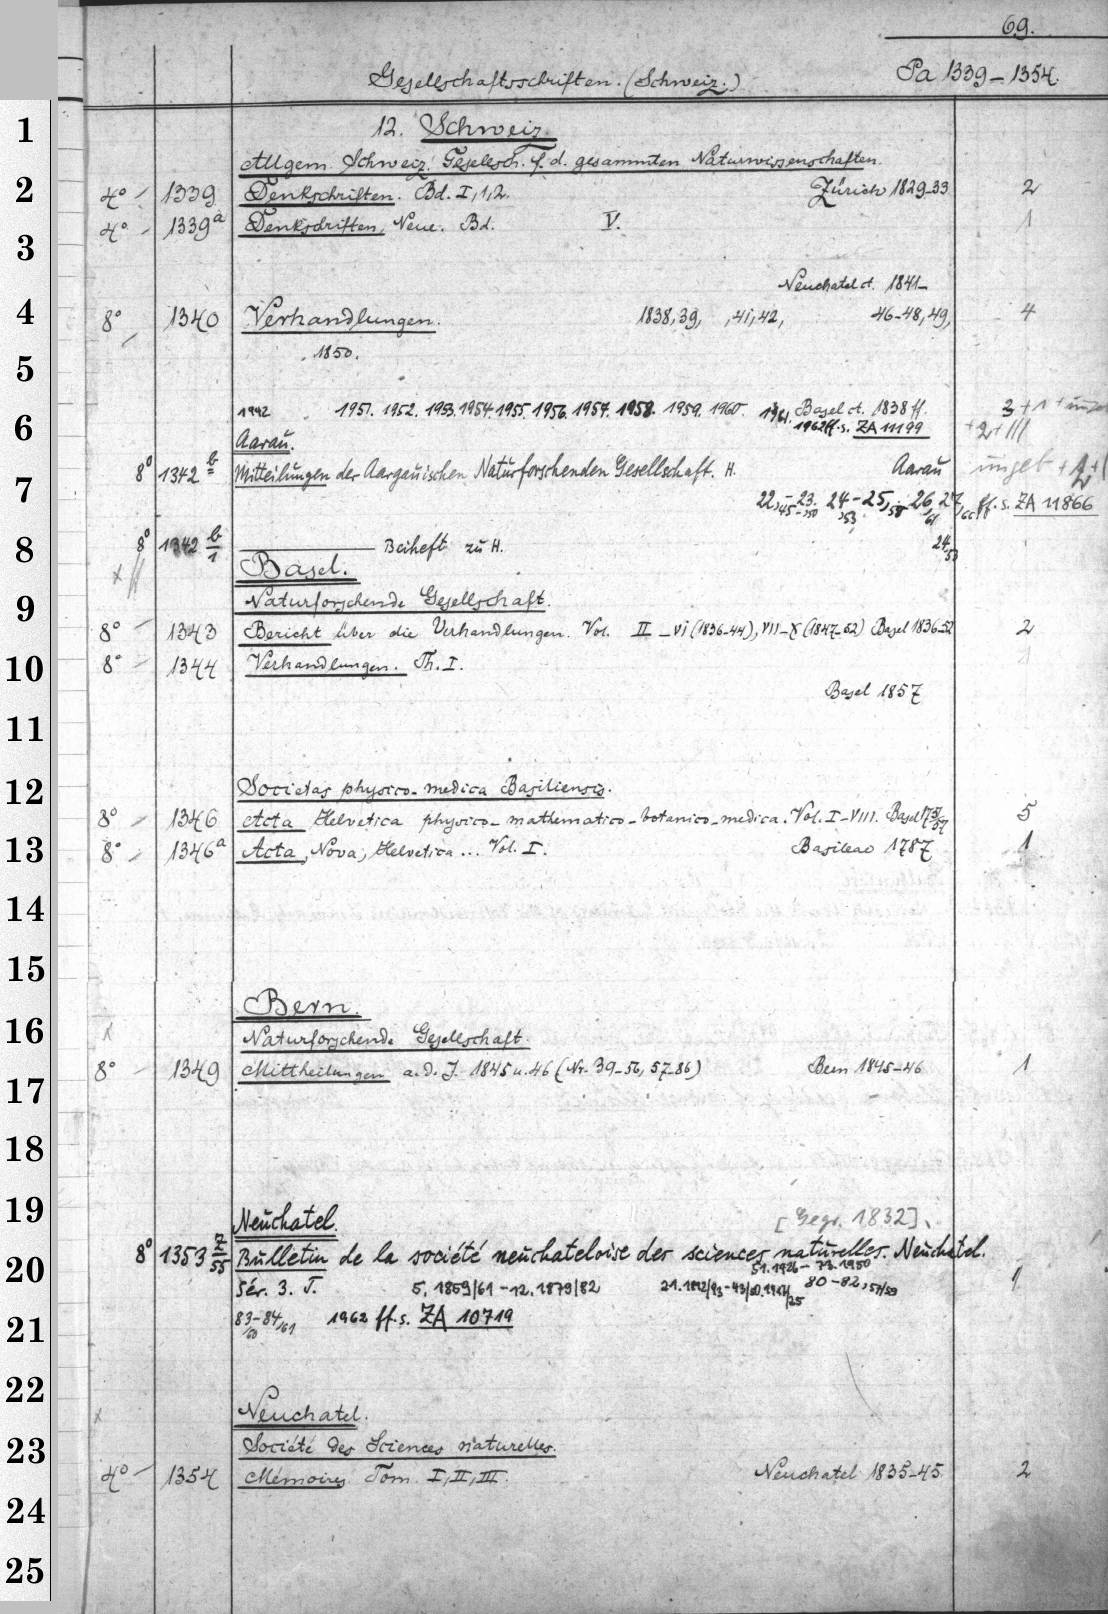 69.
Gesellschaftsschriften. (Schweiz.) Pa 1339-1354.
1 12. Schweiz.
Allgem. Schweiz. Gesellsch. f. d. gesammten Naturwissenschaften.
2 4° - 1339 Denkschriften. Bd. I,1,2. Zürich 1829-33. 2
4° - 1339a Denkschriften, Neue. Bd. V. 1
3
Neuchatel et. 1841-
4 8° 1340 Verhandlungen. 1838,39, ,41,42, 46-48,49, 4
1850.
5
1942 1951. 1952. 1953. 1954. 1955. 1956. 1957. 1958. 1959. 1960. 1961. Basel et. 1838 ff. 3+1+
6 1962 ff. s. ZA 11199 +2+III
Aarau.
8° 1342 b Mitteilungen der Aargauischen Naturforschenden Gesellschaft. H. Aarau ungeb +
7 22,-23. 24-25, 26, 27, ff. s. ZA 11866
45- 50 53 58 61 66
8 8° 1342 b/1 Beiheft zu H. 24,53
Basel.
9 Naturforschende Gesellschaft.
8° - 1343 Bericht über die Verhandlungen. Vol. II-VI (1836-44), VII-X (1847-52) Basel 1836-52 2
10 8° - 1344 Verhandlungen. Th. I.
Basel 1857
11
12 Societas physico-medica Basiliensis.
8° - 1346 Acta Helvetica physico-mathematico-botanico-medica. Vol. I-VIII. Basel 1751/ 5
13 8° - 1346a Acta, Nova, Helvetica... Vol. I. Basileae 1787 1
14
15
Bern.
16 Naturforschende Gesellschaft.
8° - 1349 Mittheilungen a. d. J. 1845 u. 46 (Nr. 39-56, 57-86) Bern 1845-46 1
17
18
19 Neuchatel. [Gegr. 1832]
20 8° 1353 Z/55 Bulletin de la société neuchateloise des sciences naturelles. Neuchatel.
51.1926-73.1950
Sér. 3. T. 5. 1859/61-12.1879/82 21.1892/93-43/ 80-82, 57/59 1
21 83-84, 1962 ff. s. ZA 10719
/60 /61
22
Neuchatel.
23 Société des Sciences naturelles.
4° - 1354 Mémoires Tom. I, II, III. Neuchatel 1835-45. 2
24
25